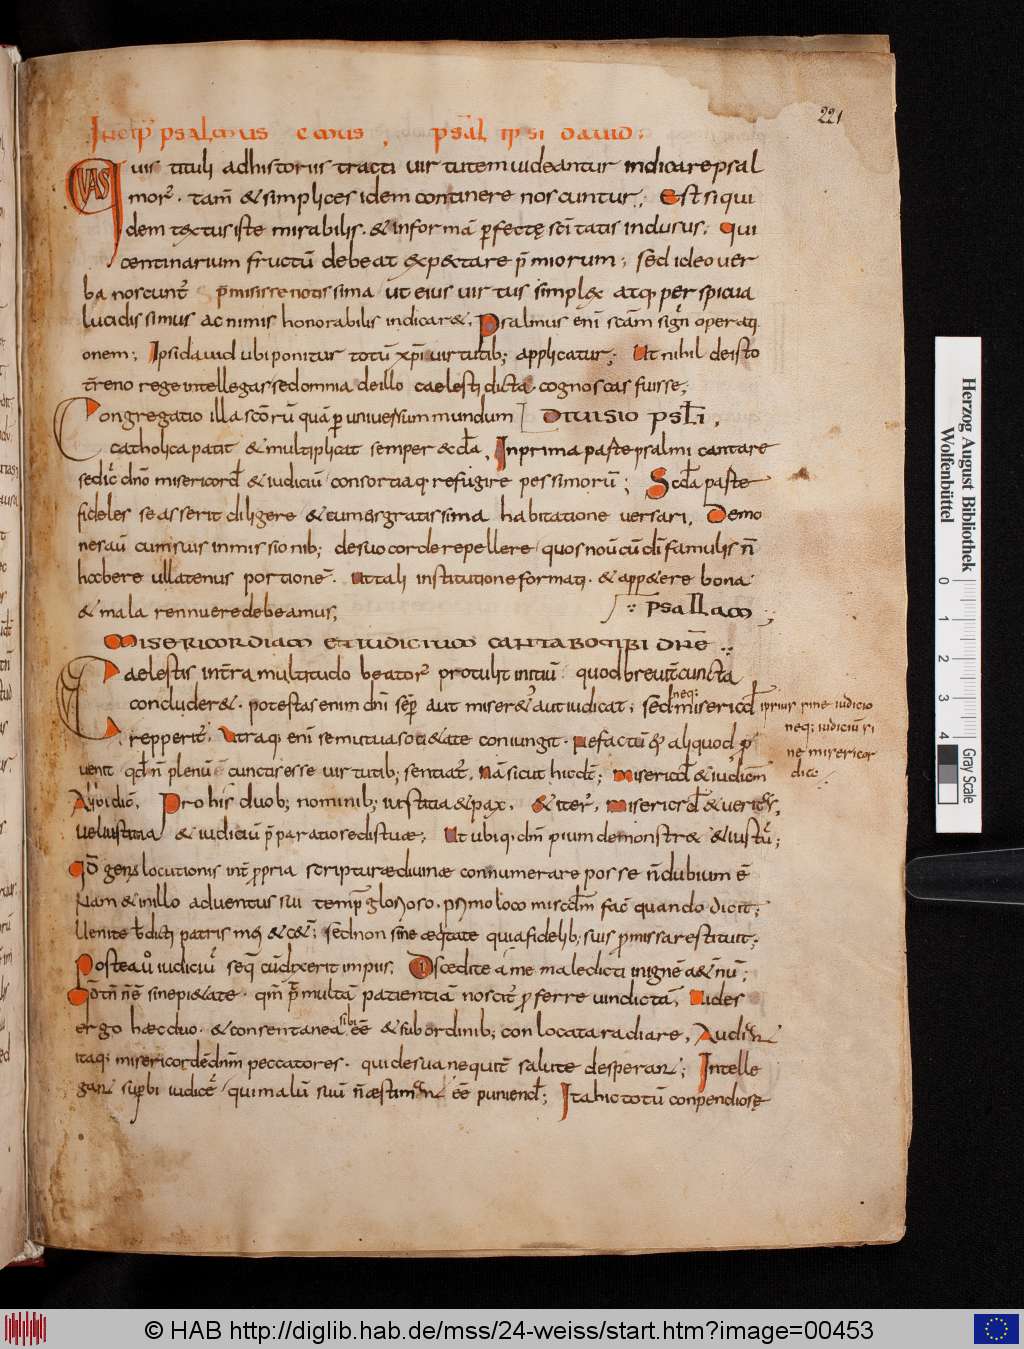 221
Incip psalmus cmus, psal ipsi dauid:
QVAS uis tituli adhistoriis tracti uirtutem uideantur indicare psal
mor. tam̄ & simplices idem continere noscuntur; Est siqui
dem textus iste mirabilis. & informā p̄fectę sc̄itatis indusus; Qui
centinarium fructū debeat expectare p̄miorum; sed ideo uer
ba noscunt̄ p̄misisse notissima ut eius uirtus simplex atq; perspicua
lucidissimus ac nimis honorabilis indicar&. Psalmus enī sc̄am sign̄ operati
onem; Ipsi dauid ubi ponitur totū xp̄i uirtutib; applicatur; Ut nihil deisto
t̄reno rege intellegas sed omnia deillo caelesti dicta. cognoscas fuisse;
Congregatio illa sc̄orū quā per uniuersum mundum Diuisio psl̄i.
catholica patit & multiplicat semper & cd̄a. In prima parte psalmi cantare
se dic̄ dn̄o misericord̄ & iudiciū consortiaq; refugire pessimorū; Scd̄a parte
fideles se asserit diligere & cum eis gratissima habitatione uersari. Demo
nes aū cum suis inmissionib; de suo corde repellere quos nouit cū dn̄i famulis n̄
habere ullatenus portionē. Ut tali institutione formati. & appetere bona
& mala rennuere debeamus; psallam;
Misericordiam et iudicium cantabo tibi dn̄e
Caelestis int̄ra multitudo beator̄ protulit initiū quod breuit̄ cuncta
concluder&. potestas enim dn̄i semp̄ aut miser& aut iudicat; sed neq; misericord̄
ipsius sine iudicio
neq; iudiciū si
ne misericor
dia
repperit̄. Utraq; enī se mutua societate coniungit. Refactū aliquod p̄
uenit qd̄ n̄ plenū ē cunctis esse uirtutib; sentiat̄. Nā sicut hic dic̄; misericord̄ & iudiciūm
Alibi dic̄. Pro his duob; nominib; iustitia & pax. & iter̄. misericord̄ & ueritas,
uel iustitia & iudiciū p̄paratio sedis tuae; Ut ubiq; dn̄m pium demonstr& & iustū;
Qd̄ genus locutionis int̄ propria scripturae diuinae connumerare posse n̄ dubium ē
Nam & in illo aduentus sui temp̄ glorioso. primo loco misc̄dm̄ fac̄ quando dicit;
Uenite b̄dicti patris mei & c&; sed non sine aequitate quia fidelib; suis promissa restituit;
Postea u̇ iudiciū seq̄ cū dixerit impiis. Discedite a me maledicti in ignē aet̄nū;
Qd̄ tn̄ n̄ ē sine pietate. qm̄ p̄ multā patientiā noscit̄ proferre uindictā. Uides
ergo haec duo. & consentanea sibi eē & sub ordinib; conlocata radiare. Audiant
itaq; misericordē dn̄m peccatores. qui de sua nequit̄ salute desperant; Intelle
gant superbi iudicē qui malū suū n̄ aestimant eē puniend̄; Ita hic totū conpendiosę
Herzog August Bibliothek
Wolfenbüttel
0 1 2 3 4
Gray Scale
© HAB http://diglib.hab.de/mss/24-weiss/start.htm?image=00453